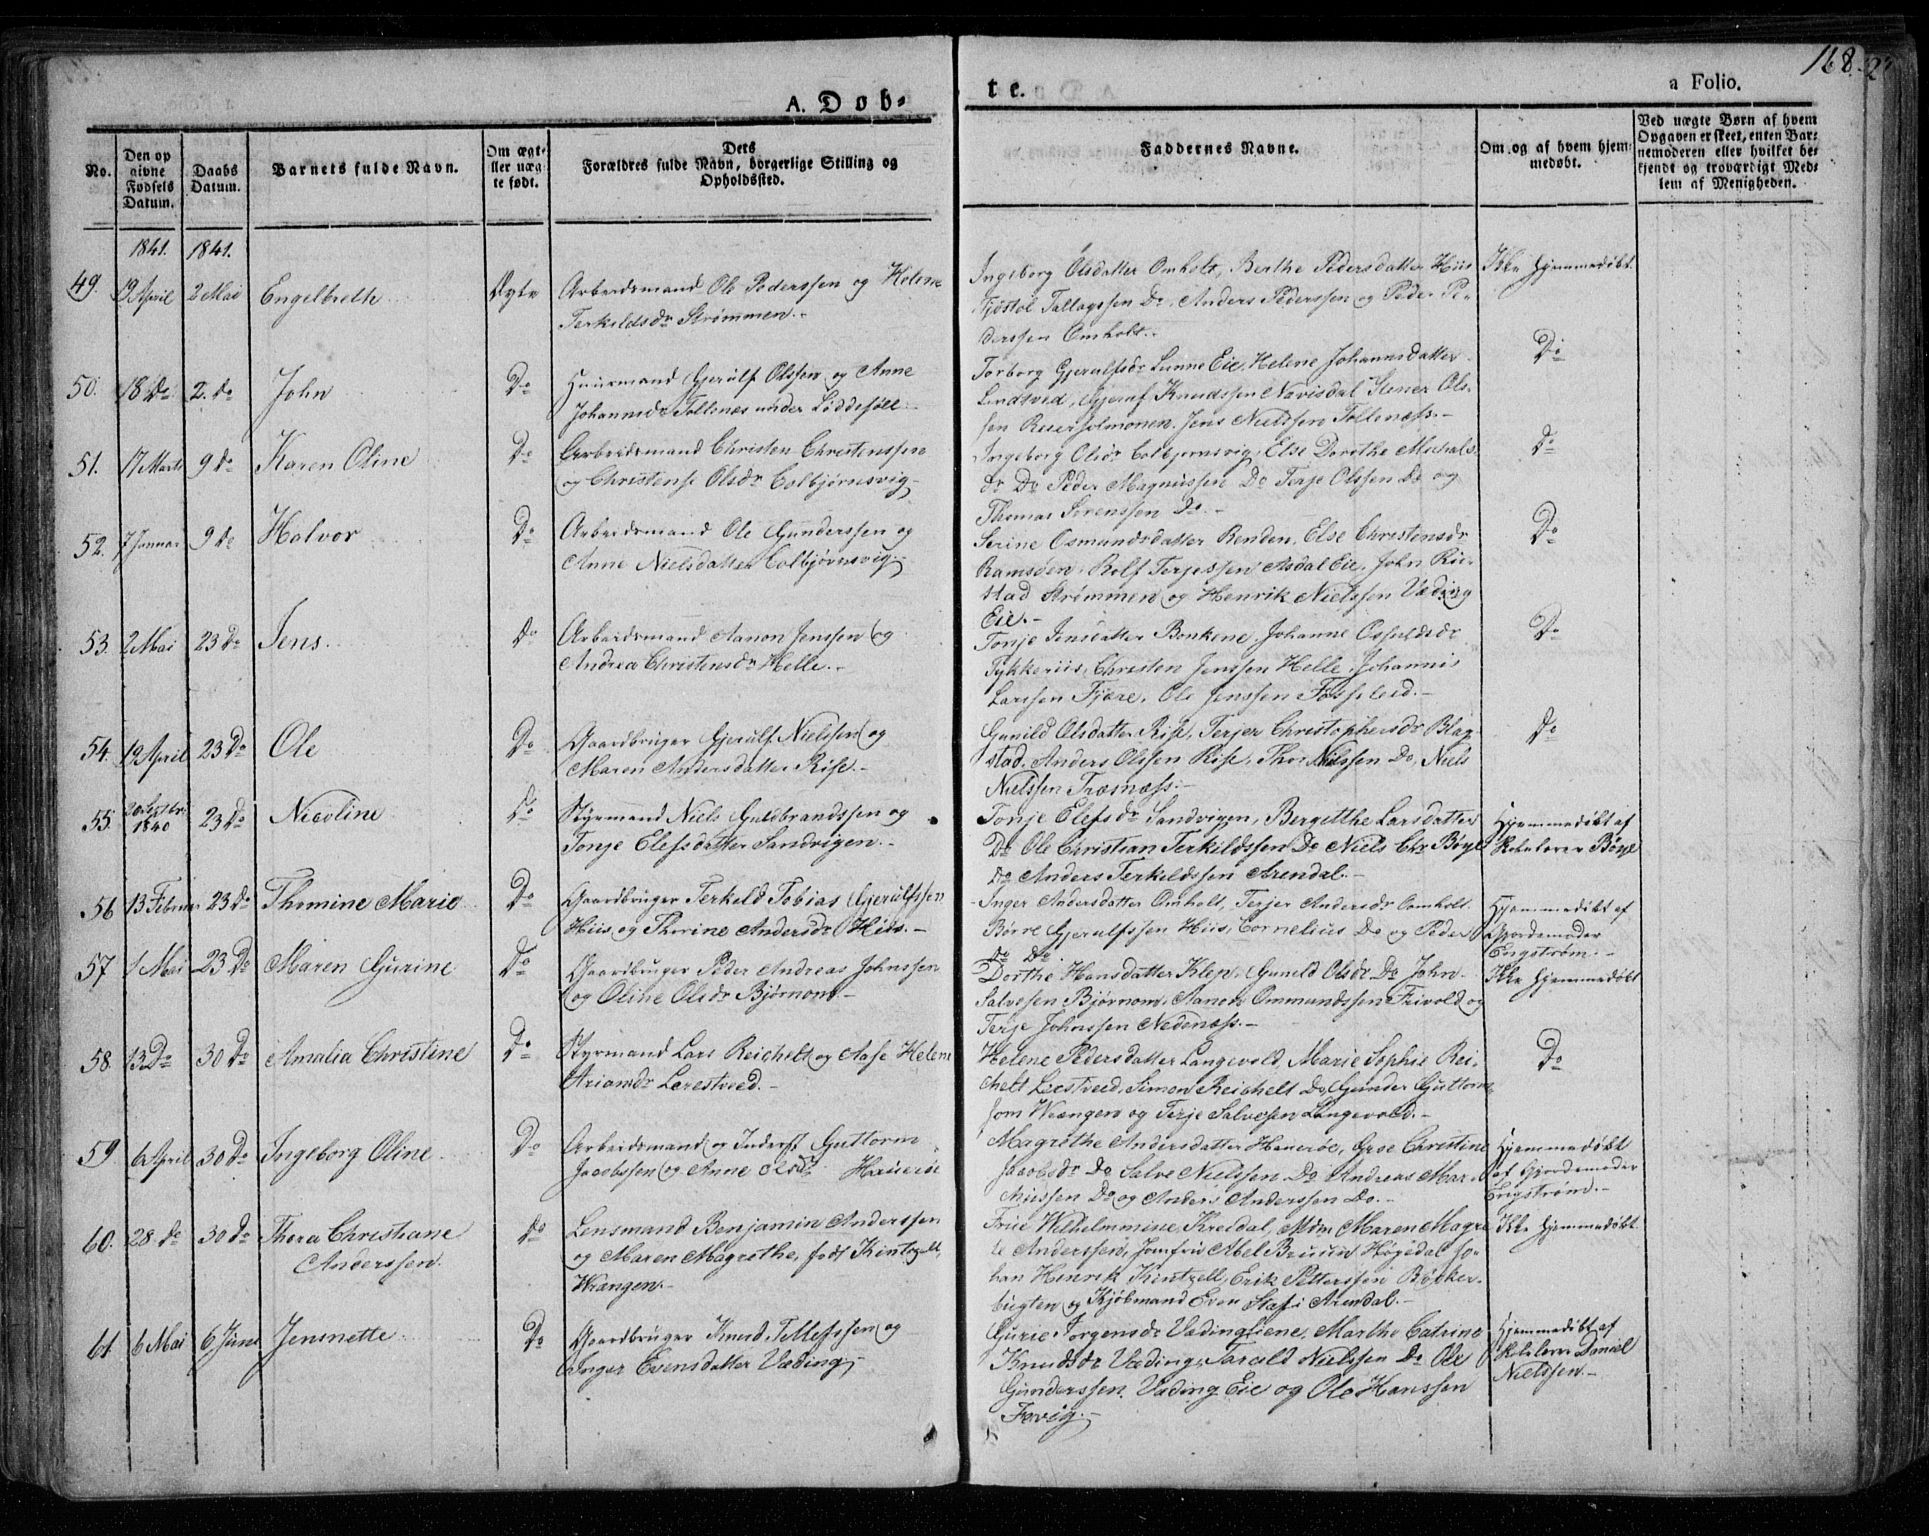 A. Døb-
te.
a Folio.
168.
No.
Den op
givne
Fødsels
Datum.
Daabs
Datum.
Barnets fulde Navn.
Om ægt-
eller uæg-
te født.
Dets
Forældres fulde Navn, borgerlige Stilling og
Opholdssted.
Faddernes Navne.
Om og af hvem hjem-
medøbt.
Ved uægte Børn af hvem
Opgaven er skeet, enten Bar-
nemoderen eller hvilket be-
kjendt og troværdigt Med-
lem af Menigheden.
1841. 1841.
49. 19 April 2 Mai Engelbreth Ægte Arbeidsmand Ole Pederssen og Helene
Terkildsdr Strømmen.
Ingeborg Olsdatter Omholt, Berthe Pedersdatter Hiis
Fjøstol Tallagssen Do, Anders Pederssen og Peder Pe-
derssen Omholt.
Ikke hjemmedøbt.
50. 18 do 2. do John Do Huusmand Gjerulf Olssen og Anne
Johannsdr Tollenes under Løddesøll.
Torborg Gjerulfsdr Lunne Eie, Helene Johannsdatter
Lindtved, Gjeruf Knudssen Navisdal Stener Ols-
sen, Jens Nielssen Tollenæss.
Do
51. 17 Marts 9 do Karen Oline Do Arbeidsmand Christen Christenssen
og Christense Olsdr Colbjørnsvig
Ingeborg Olsdr Colbjørnsvig, Else Dorothe Michals-
dr Do Peder Magnussen Do Terje Olssen Do og
Thomas Sørenssen Do.
Do
52. 7 Januar 9 do Halvor Do Arbeidsmand Ole Gunderssen og
Anne Nielsdatter Colbjørnsvig
Serine Osmundsdatter Renden, Else Christensdr
Ramsøen, Rolf Terjessen Asdal Eie, John Rii-
stad Strømmen og Henrik Nielssen Væding
Eie.
Do
53. 2 Mai 23 do Jens. Do Arbeidsmand Aanon Jenssen og
Andrea Christensdr Helle.
Tonje Jensdatter Bonkene, Johanne Osfuldsdr
Tykkeriis, Christen Jenssen Helle, Johannis
Larssen Fjære, Ole Jenssen Fosseleid.
Do
54. 19 April 23 do Ole Do Gaardbruger Gjerulf Nielssen og
Maren Andersdatter Rise.
Gunild Olsdatter Rise, Terjer Christophersdr Blag-
stad, Anders Olssen Rise, Thor Nielssen Do, Niels
Nielssen Træsnæss.
Do
55. 20 Septbr. 1840 23 do Nicoline Do Styrmand Niels Guldbrandssen og
Tonje Elefsdatter Sandvigen.
Tonje Elefsdr Sandvigen, Bergithe Larsdatter
Do Ole Christian Terkildssen Do Niels Chr Bøye
Do Anders Terkildssen Arendal.
Hjemmedøbt af
Skolelærer Bøye
56 13 Februar 23 do Thomine Marie Do Gaardbruger Terkeld Tobias Gjerulfssen
Hiis og Thorine Andersdr Hiis.
Inger Andersdatter Omholt, Terjer Andersdr Omholt
Børre Gjerulfssen Hiis, Cornelius Do og Peder
Do Do.
Hjemmedøbt af
Gjordemoder
Engstrøm.
57 1 Mai 23 do Maren Gurine Do Gaardbruger Peder Andreas Johnssen
og Oline Olsdr Bjørnom
Dorthe Hansdatter Klep, Gunild Olsdr Do John
Salvesen Bjørnom, Aanon Ommundssen Frivold og
Terje Johnssen Nedenæss.
Ikke hjemmedøbt
58. 13 Do 30 Do Amalia Christine Do Styrmand Lars Reichelt og Aase Helene
Ariansdr Lerestveed.
Helene Pedersdatter Langevold, Marie Sophie Rei-
chelt Leestveed, Simon Reichelt Do, Gunder Guttorm-
som Wrængen og Terje Salvesen Langevold.
Do
59 6 April 30 Do Ingeborg Oline Do Arbeidsmand og Inderst Guttorm
Jacobssen og Anne Olsdr Haverøe
Magrethe Andersdatter Haverøe, Gose Christine
Jacobsdr Do Salve Nielssen Do Andreas Mar-
Do og Anders Anderssen Do.
Hjemmedøbt
af Gjordemoder
Engstrøm.
60. 28 do 30 do Thora Christiane
Anderssen.
Do Lensmand Benjamin Anderssen
og Maren Magrethe, født Kintzell
Wrængen.
Frue Wilhelmmine Kreidal, Mdm Maren Magre-
te Anderssen, Jomfru Abel Bruun Høgedal Jo-
han Henrik Kintzell, Erik Petterssen Bøcker-
bugten og Kjøbmand Even Staf i Arendal.
Ikke hjemmedøbt
61 6 Mai 6 Juni Jensnette Do Gaardbruger Knud Tellefssen og
Inger Evensdatter Væding
Gurie Torgensdr Vadingliene, Marthe Catrine
Knudsdr Væding, Tarald Nielssen Do Ole
Gunderssen Væding Eie og Ole Hanssen
Færvig.
Hjemmedøbt af
Skolelærer Daniel
Nielssen.